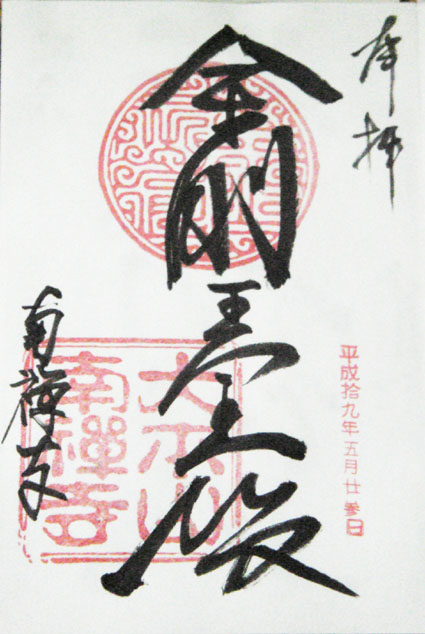 奉拝
平成拾九年五月廿参日
金剛王宝殿
大本山
南禪寺
南禅寺